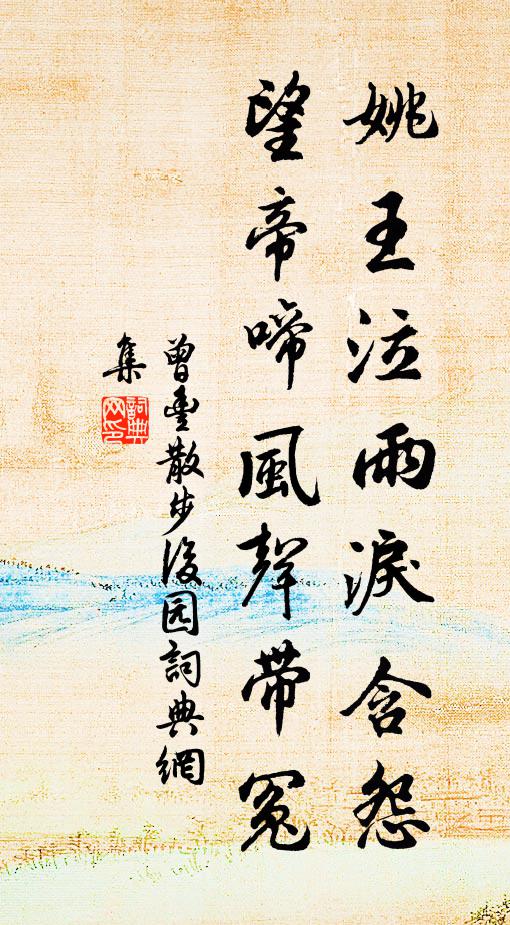 姚王泣雨淚含怨
望帝啼風聲帶冤
曾豊散步後园詞典網
集
詞典网印